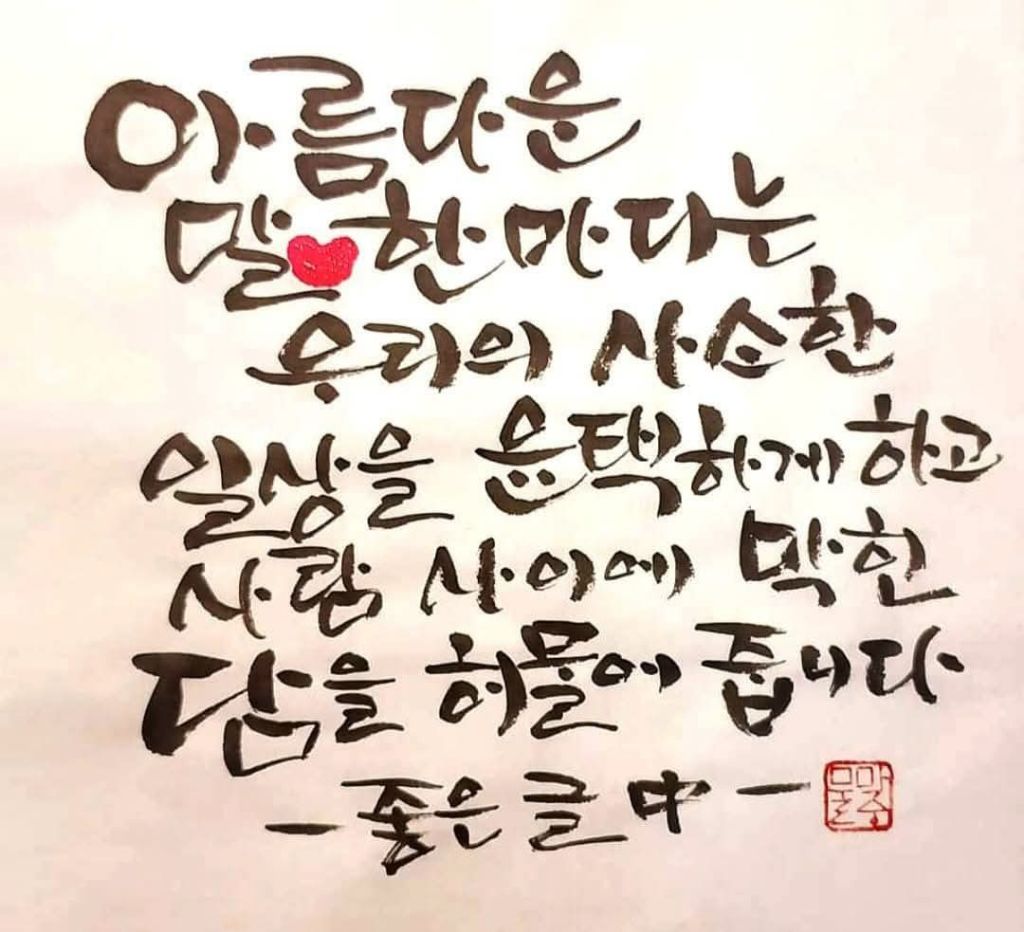 아름다운
말 한마디는
우리의 사소한
일상을 윤택하게 하고
사람 사이에 막힌
담을 허물어 줍니다
- 좋은 글 中 -